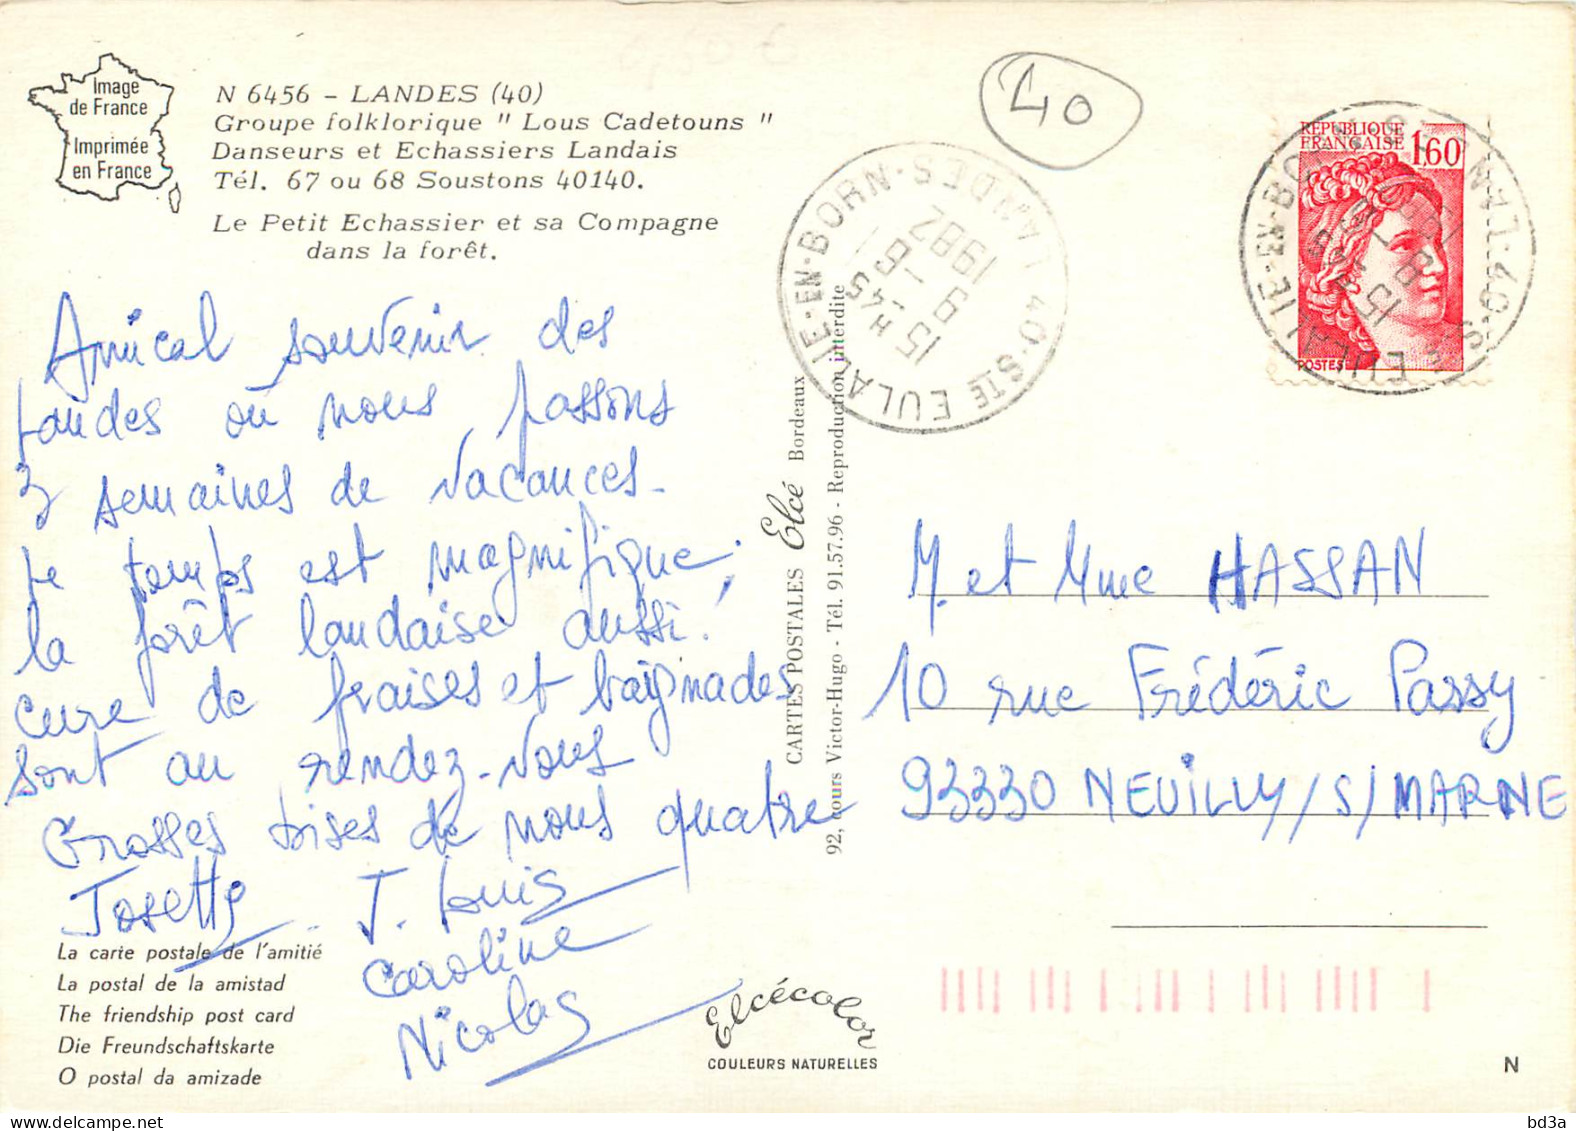 Image
de France
Imprimée
en France
N 6456 - LANDES (40)
Groupe folklorique " Lous Cadetouns "
Danseurs et Echassiers Landais
Tél. 67 ou 68 Soustons 40140.
Le Petit Echassier et sa Compagne
dans la forêt.
40
40·STE EULALIE-EN-BORN·LANDES
15 H 45
15-6
1982
REPUBLIQUE
FRANÇAISE 1,60
POSTES
Amical souvenir des
Landes où nous passons
3 semaines de vacances -
Le temps est magnifique ;
la forêt landaise aussi !
Cure de fraises et baignades
sont au rendez-vous
Grosses bises de nous quatre
Josette J. Louis
Caroline
Nicolas
La carte postale de l'amitié
La postal de la amistad
The friendship post card
Die Freundschaftskarte
O postal da amizade
CARTES POSTALES Elcé Bordeaux
92, cours Victor-Hugo - Tél. 91.57.96 - Reproduction interdite
M. et Mme HASSAN
10 rue Frédéric Passy
93330 NEUILLY/S/MARNE
Elcécolor
COULEURS NATURELLES
N
bd3a